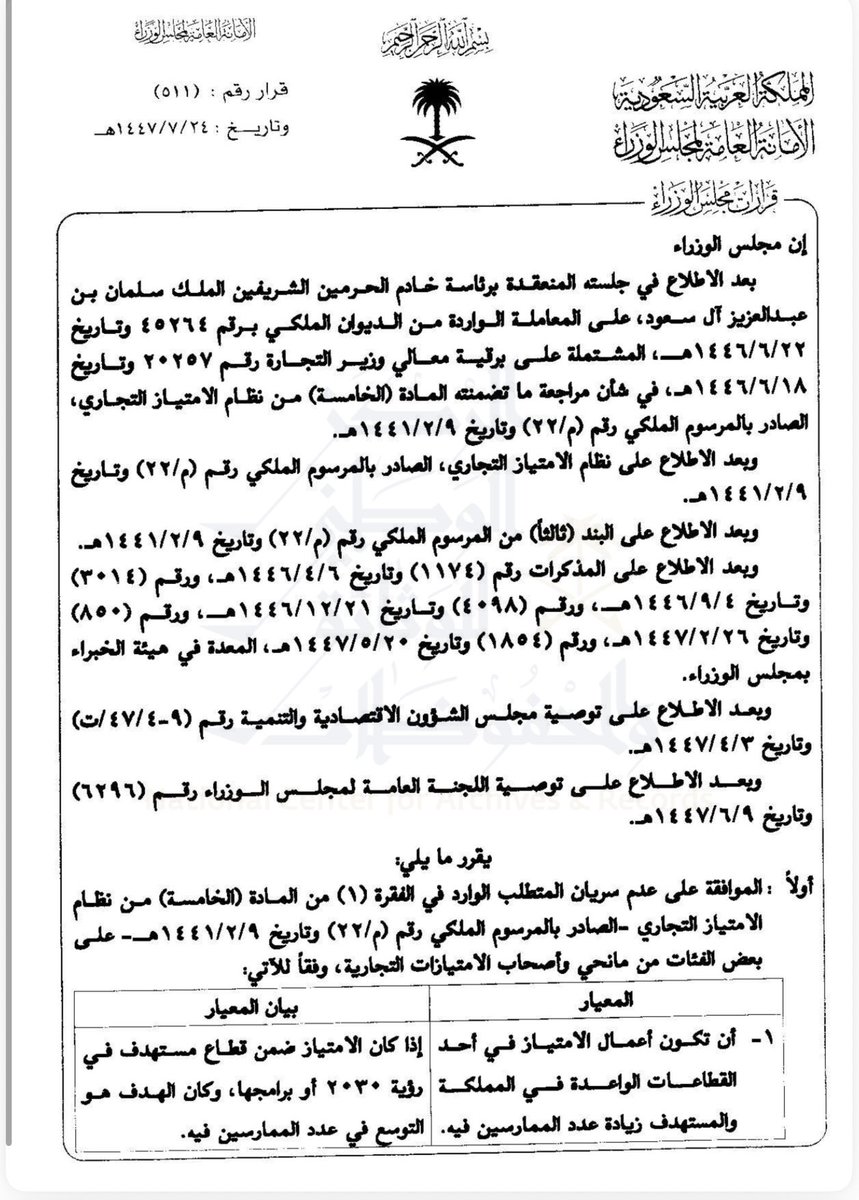 بسم الله الرحمن الرحيم
المملكة العربية السعودية
الأمانة العامة لمجلس الوزراء
الأمانة العامة لمجلس الوزراء
قرار رقم : (٥١١)
وتاريـــخ : ١٤٤٧/٧/٢٤هـ
قرارات مجلس الوزراء
إن مجلس الوزراء
بعد الاطلاع في جلسته المنعقدة برئاسة خادم الحرمين الشريفين الملك سلمان بن
عبدالعزيز آل سعود، على المعاملة الواردة من الديوان الملكي برقم ٤٥٢٦٤ وتاريخ
١٤٤٦/٦/٢٢هـ، المشتملة على برقية معالي وزير التجارة رقم ٢٠٢٥٧ وتاريخ
١٤٤٦/٦/١٨هـ، في شأن مراجعة ما تضمنته المادة (الخامسة) من نظام الامتياز التجاري،
الصادر بالمرسوم الملكي رقم (م/٢٢) وتاريخ ١٤٤١/٢/٩هـ.
وبعد الاطلاع على نظام الامتياز التجاري، الصادر بالمرسوم الملكي رقم (م/٢٢) وتاريخ
١٤٤١/٢/٩هـ.
وبعد الاطلاع على البند (ثالثاً) من المرسوم الملكي رقم (م/٢٢) وتاريخ ١٤٤١/٢/٩هـ.
وبعد الاطلاع على المذكرات رقم (١١٧٤) وتاريخ ١٤٤٦/٤/٦هـ، ورقم (٣٠١٤)
وتاريخ ١٤٤٦/٩/٤هـ، ورقم (٤٠٩٨) وتاريخ ١٤٤٦/١٢/٢١هـ، ورقم (٨٥٠)
وتاريخ ١٤٤٧/٢/٢٦هـ، ورقم (١٨٥٤) وتاريخ ١٤٤٧/٥/٢٠هـ، المعدة في هيئة الخبراء
بمجلس الوزراء.
وبعد الاطلاع على توصية مجلس الشؤون الاقتصادية والتنمية رقم (٩-٤/٤٧/ت)
وتاريخ ١٤٤٧/٤/٣هـ.
وبعد الاطلاع على توصية اللجنة العامة لمجلس الوزراء رقم (٦٢٩٦)
وتاريخ ١٤٤٧/٦/٩هـ.
يقرر ما يلي:
أولاً : الموافقة على عدم سريان المتطلب الوارد في الفقرة (١) من المادة (الخامسة) من نظام
الامتياز التجاري -الصادر بالمرسوم الملكي رقم (م/٢٢) وتاريخ ١٤٤١/٢/٩هـ- على
بعض الفئات من مانحي وأصحاب الامتيازات التجارية، وفقاً للآتي:
المعيار
بيان المعيار
١- أن تكون أعمال الامتياز في أحد
القطاعات الواعدة في المملكة
والمستهدف زيادة عدد الممارسين فيه.
إذا كان الامتياز ضمن قطاع مستهدف في
رؤية ٢٠٣٠ أو برامجها، وكان الهدف هو
التوسع في عدد الممارسين فيه.
المركز الوطني
للوثائق
والمحفوظات
National Center for Archives & Records